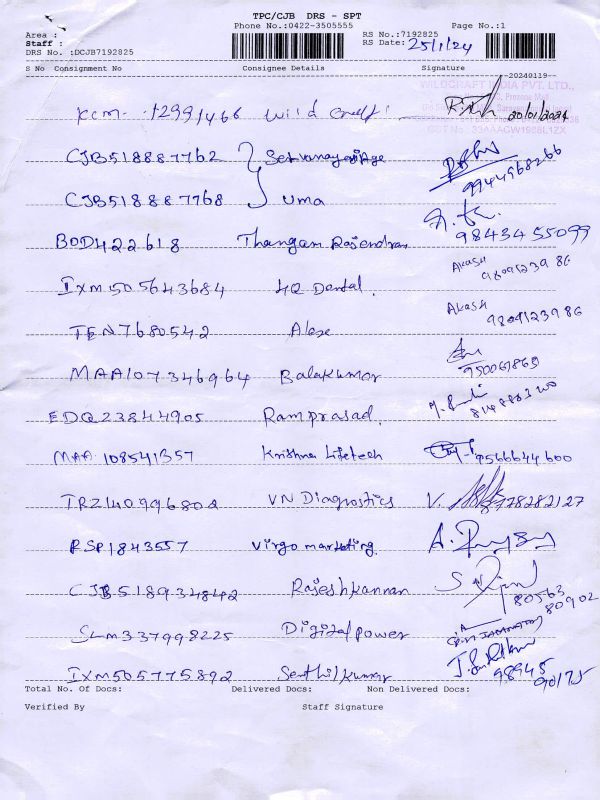 TPC/CJB DRS - SPT
Phone No.:0422-3505555 Page No.:1
Area : RS No.:7192825
Staff : RS Date: 25/1/24
DRS No. :DCJB7192825
S No Consignment No Consignee Details Signature
20240119
WILDCRAFT INDIA PVT. LTD.,
KCM - 12991466 Wild Craft 20/01/2024
CJB518887762 9944968266
CJB518887768 Uma 9843455099
BOD422618 Thangam Rajendran
IXM505643684 HQ Dental. Akash 9809123986
TEN7680542 Alex Akash 9809123986
MAA107346964 Balakumar
EDQ23844905 Ramprasad.
MAA 108541357 Krishna Lifetech 9566644600
TRZ140996802 VN Diagnostics V. 8778282127
RSP1843557 Virgo marketing.
CJB518934842 Rajeshkannan 80563 80902
SLM337998225 Digital power
IXM505775892 Senthilkumar 98945 90175
Total No. Of Docs: Delivered Docs: Non Delivered Docs:
Verified By Staff Signature